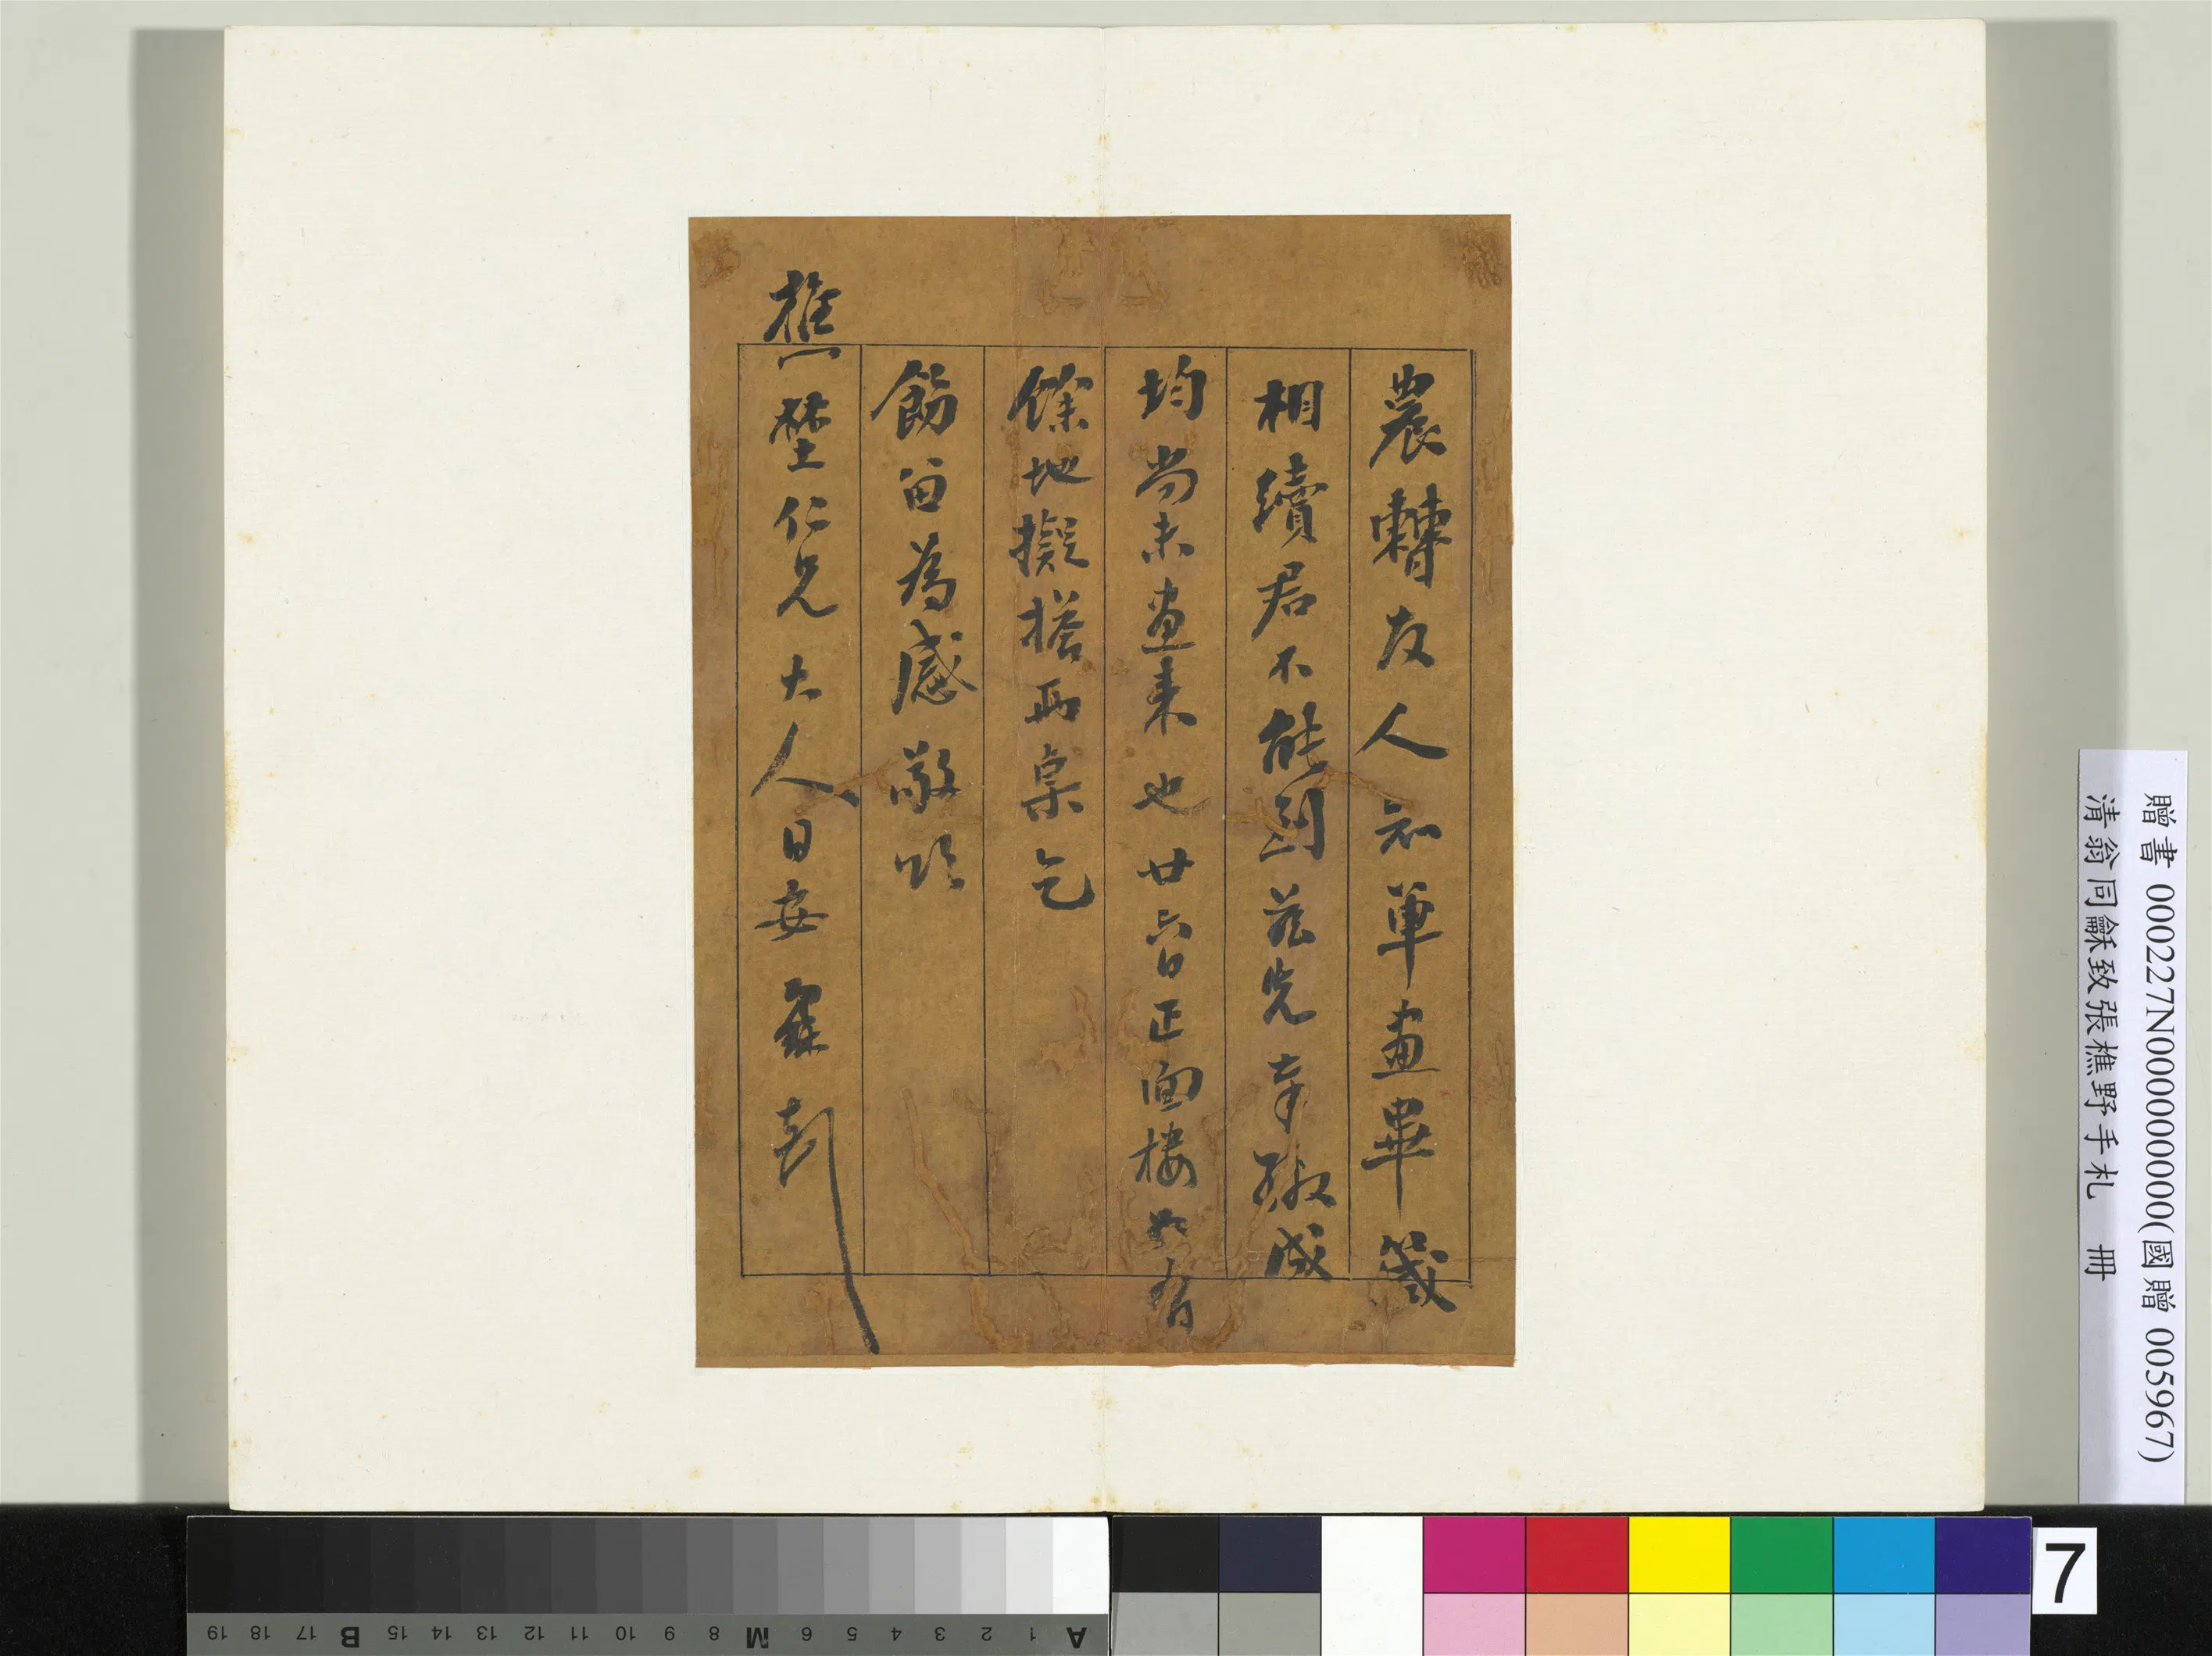 農曹友人知單畫畢箋
相續君不能到茲先奉繳盛
均尚未畫來也廿六日正面樓如有
餘地擬搭兩桌乞
飭留為感敬頌
樵埜仁兄大人日安 龢頓
贈書 000227N000000000(國贈 005967)
清翁同龢致張樵野手札 冊
A 1 2 3 4 5 6 M 8 9 10 11 12 13 14 15 B 17 18 19
7